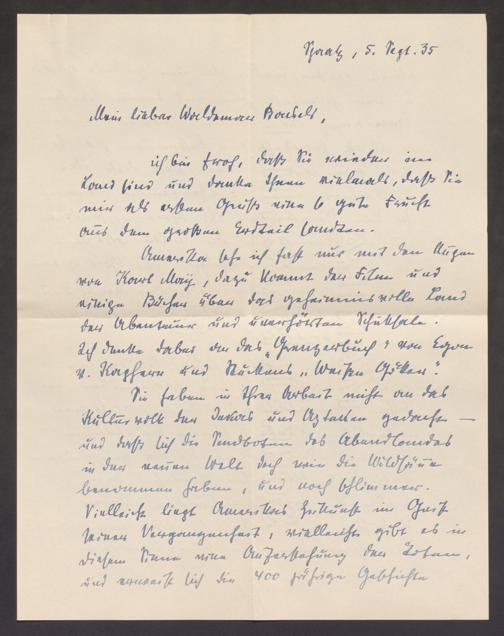 Spaatz, 5. Sept. 35
Mein lieber Waldemar Bonsels,
ich bin froh, daß Sie wieder im
Land sind und danke Ihnen vielmals, daß Sie
mir als ersten Gruß eine so gute Frucht
aus dem großen Erdteil sandten.
Amerika sehe ich fast nur mit den Augen
von Karl May, dazu kommt der Film und
einige Bücher über das geheimnisvolle Land
der Abenteuer und unerhörten Schicksale.
Ich denke dabei an das „Grenzerbuch" von Egon
v. Kapherr und Stuckens „Weißen Götter".
Sie haben in Ihrer Arbeit nicht an das
Kulturvolk der Inkas und Azteken gedacht —
und daß sich die Sendboten des Abendlandes
in der neuen Welt doch wie die Wildsäue
benommen haben, und noch schlimmer.
Vielleicht liegt Amerikas Zukunft im Geist
seiner Vergangenheit, vielleicht gibt es in
diesem Sinne eine Auferstehung der Toten,
und erweist sich die 400 jährige Geschichte